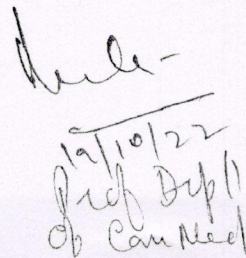 19/10/22
Prof Deptt
of Can Med